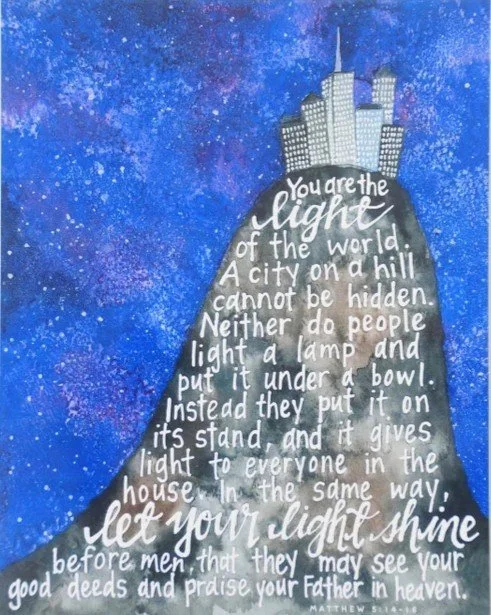 You are the
light
of the world.
A city on a hill
cannot be hidden.
Neither do people
light a lamp and
put it under a bowl.
Instead they put it on
its stand, and it gives
light to everyone in the
house. In the same way,
let your light shine
before men, that they may see your
good deeds and praise your Father in heaven.
MATTHEW 5:14-16